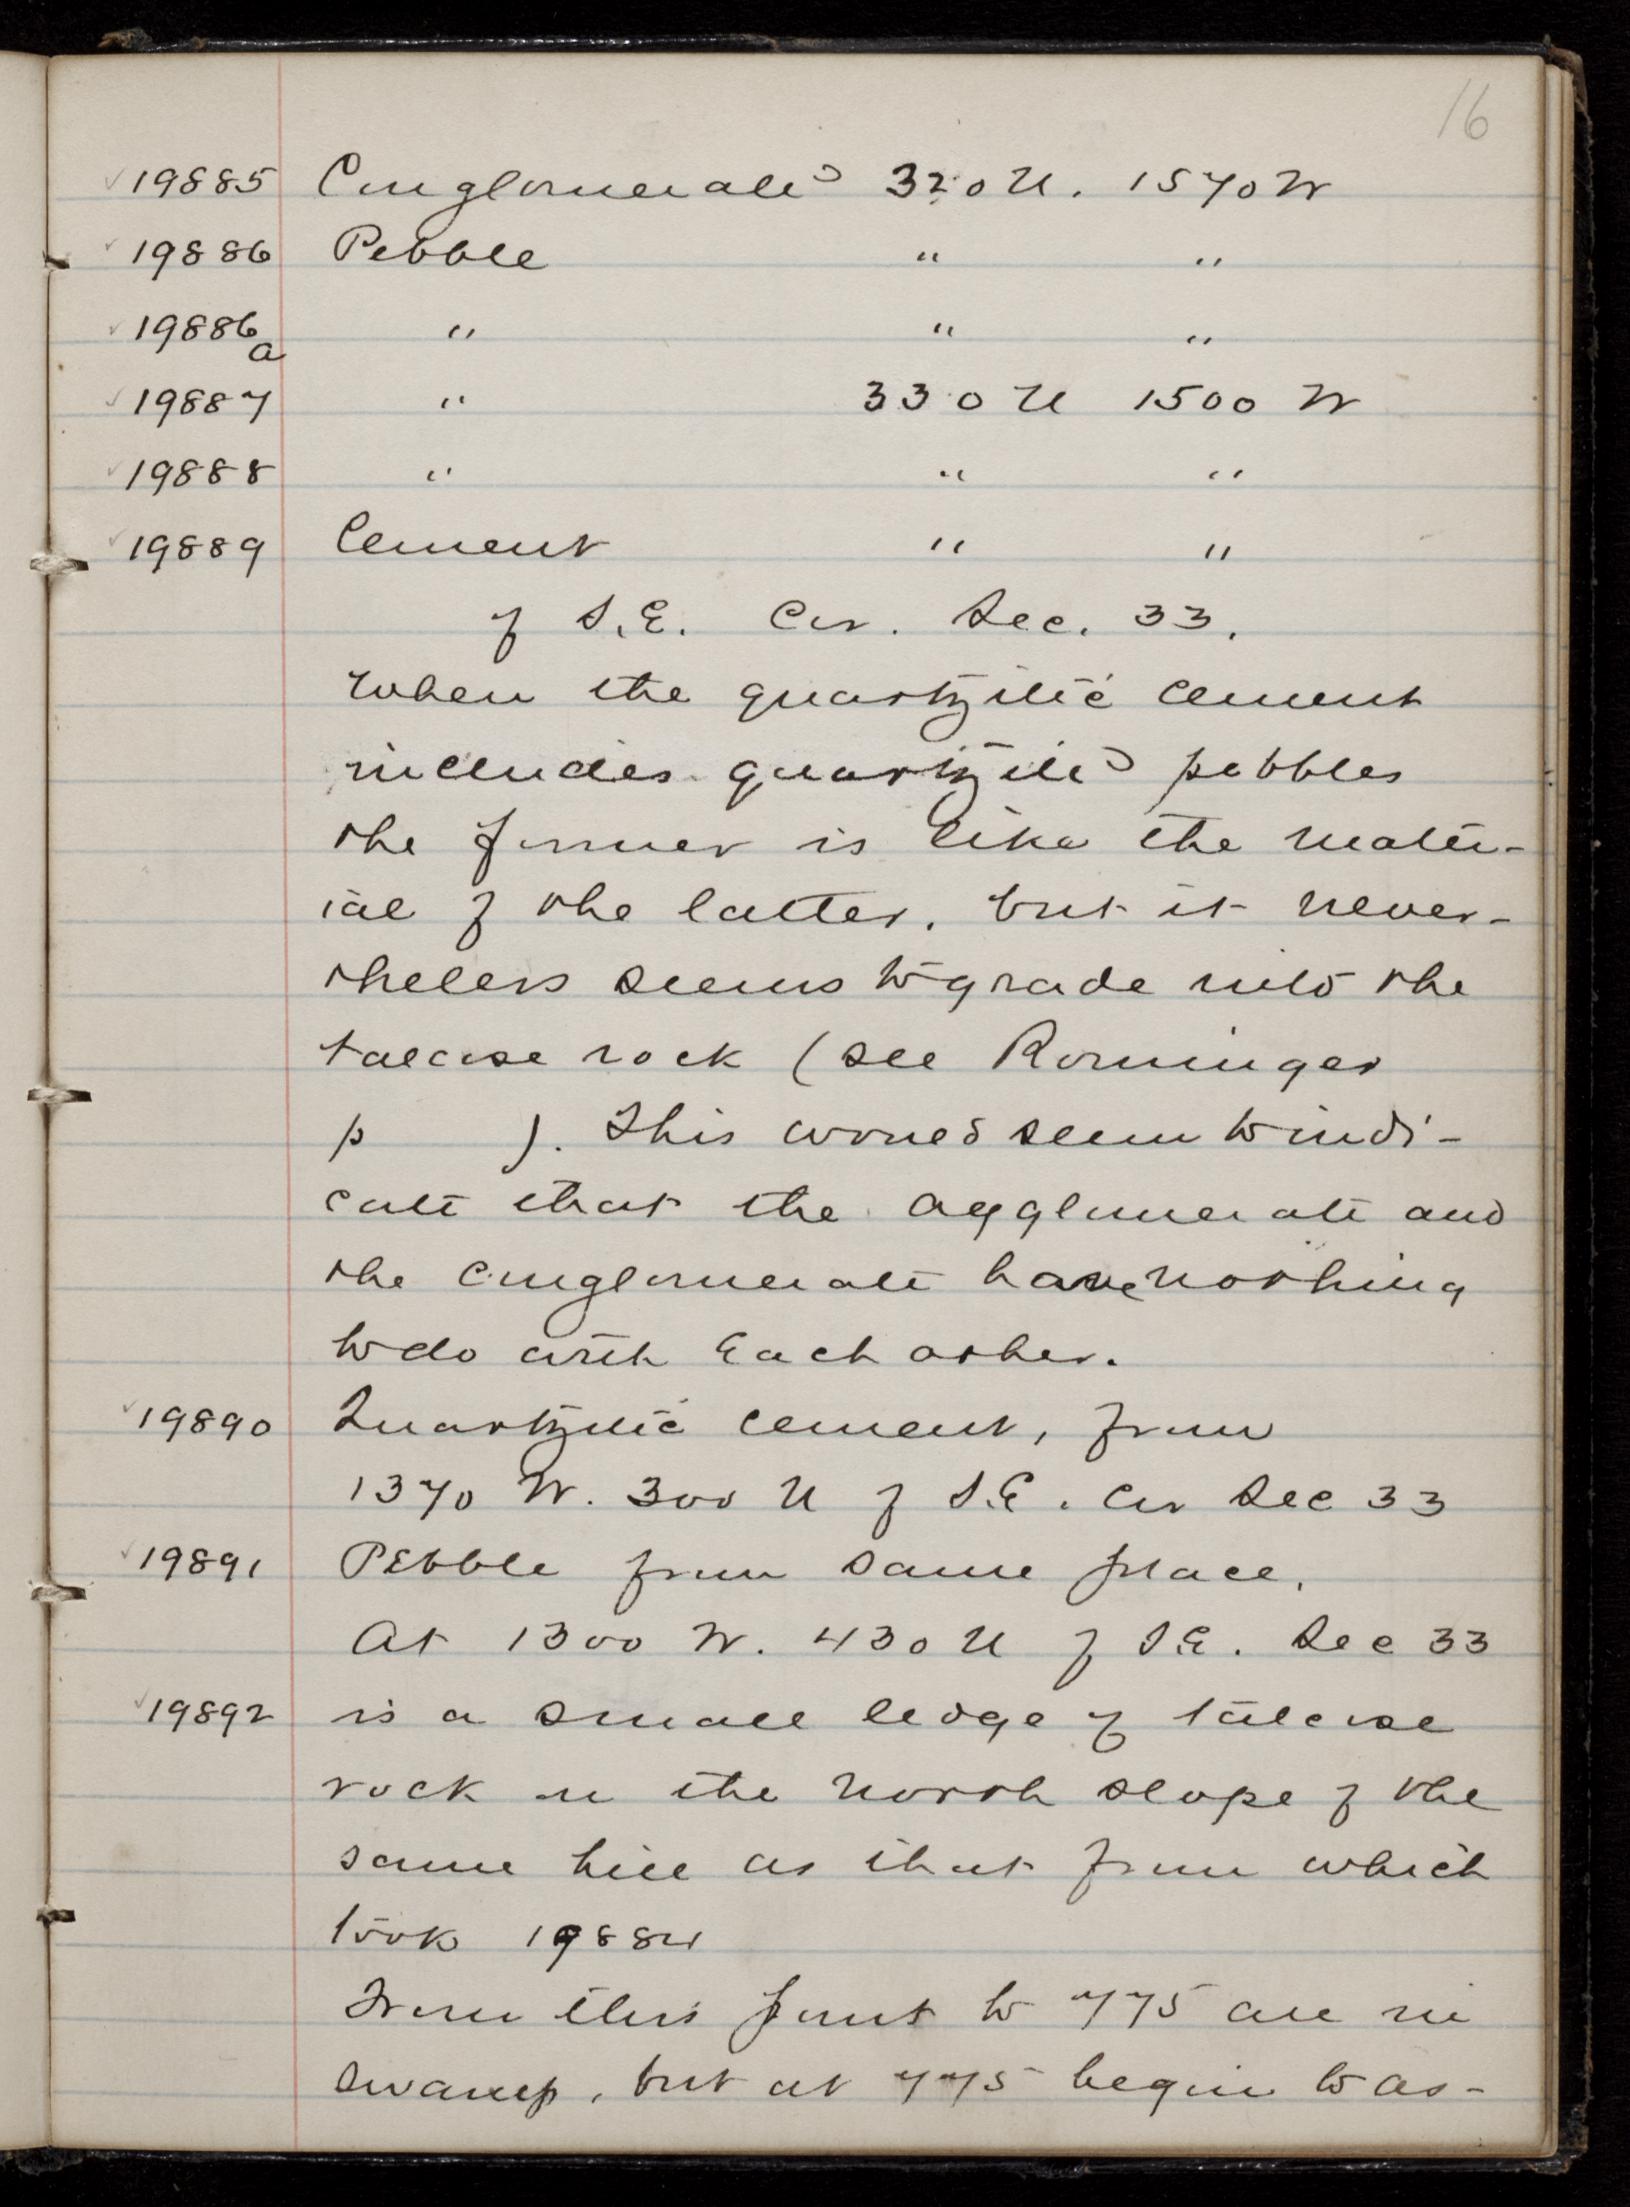 16
19885 Conglomerate 320 N. 1570 W
19886 Pebble " "
19886a " " "
19887 " 330 N 1500 W
19888 " " "
19889 Cement " "
of S.E. Cor. Sec. 33.
When the quartzitic cement
includes quartzite pebbles
the former is like the mater-
ial of the latter, but it never-
theless seems to grade into the
talcose rock (see Rominger
p ). This would seem to indi-
cate that the agglomerate and
the conglomerate have nothing
to do with each other.
19890 Quartzitic cement, from
1370 W. 300 N of S.E. Cor Sec 33
19891 Pebble from same place.
At 1300 W. 430 N of S.E. Sec 33
19892 is a small ledge of talcose
rock on the north slope of the
same hill as that from which
took 19884
From this point to 775 are in
swamp, but at 775 begin to as-